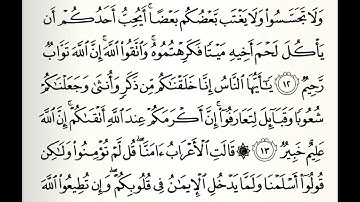 وَلَا تَجَسَّسُوا۟ وَلَا يَغْتَب بَّعْضُكُم بَعْضًا ۚ أَيُحِبُّ أَحَدُكُمْ أَن
يَأْكُلَ لَحْمَ أَخِيهِ مَيْتًا فَكَرِهْتُمُوهُ ۚ وَٱتَّقُوا۟ ٱللَّهَ ۚ إِنَّ ٱللَّهَ تَوَّابٌ
رَّحِيمٌ ١٢ يَـٰٓأَيُّهَا ٱلنَّاسُ إِنَّا خَلَقْنَـٰكُم مِّن ذَكَرٍ وَأُنثَىٰ وَجَعَلْنَـٰكُمْ
شُعُوبًا وَقَبَآئِلَ لِتَعَارَفُوٓا۟ ۚ إِنَّ أَكْرَمَكُمْ عِندَ ٱللَّهِ أَتْقَىٰكُمْ ۚ إِنَّ ٱللَّهَ
عَلِيمٌ خَبِيرٌ ١٣ ۞ قَالَتِ ٱلْأَعْرَابُ ءَامَنَّا ۖ قُل لَّمْ تُؤْمِنُوا۟ وَلَـٰكِن
قُولُوٓا۟ أَسْلَمْنَا وَلَمَّا يَدْخُلِ ٱلْإِيمَـٰنُ فِى قُلُوبِكُمْ ۖ وَإِن تُطِيعُوا۟ ٱللَّهَ